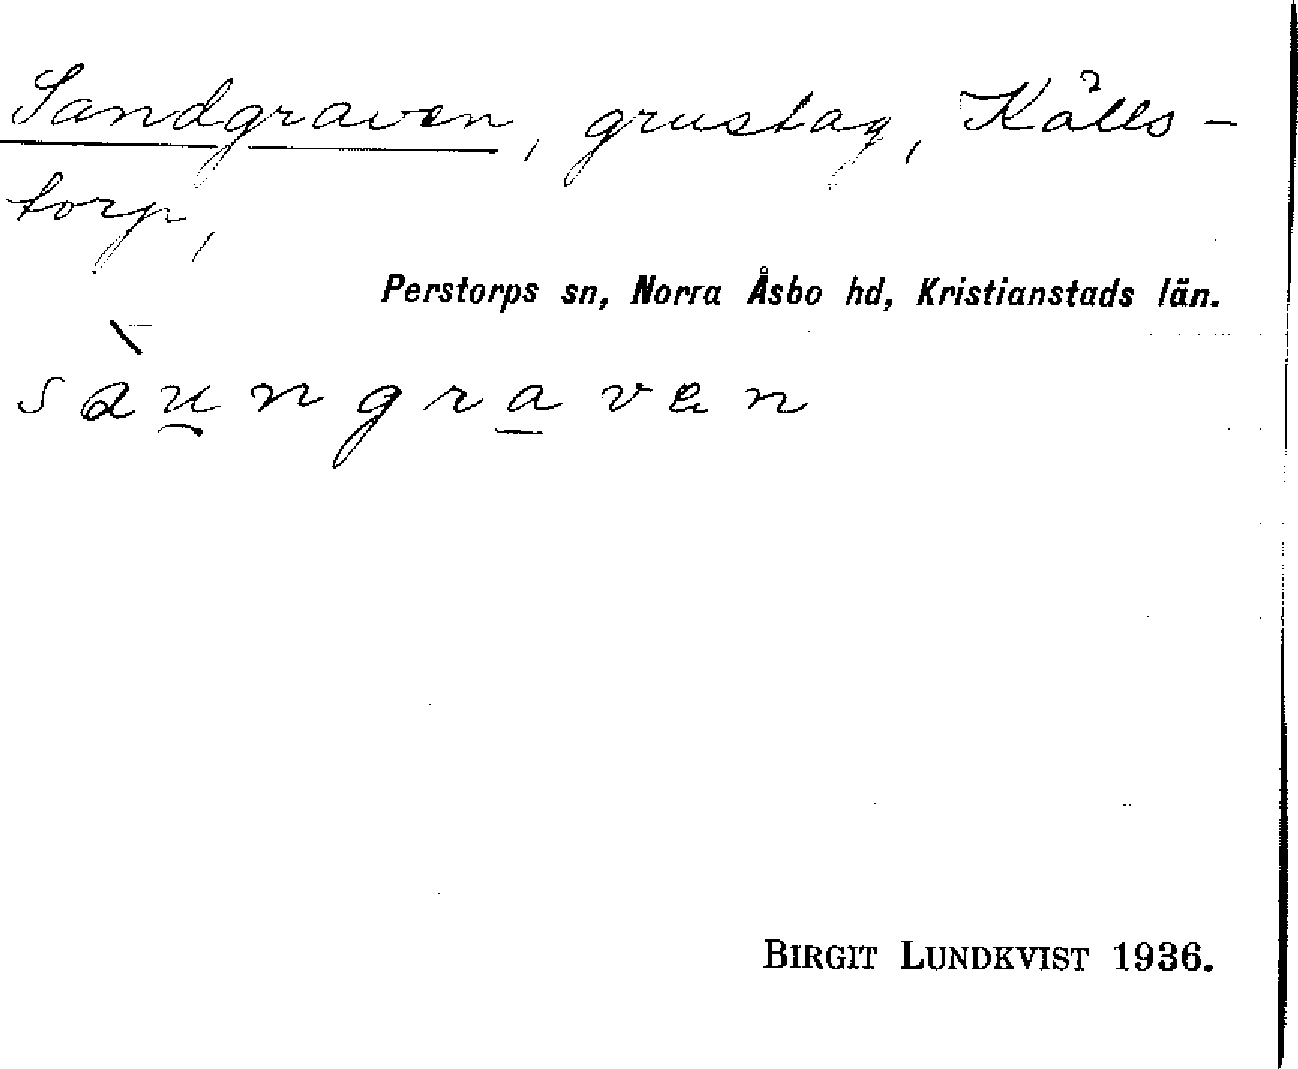 Sandgraven, grustag, Källs-
torp,
Perstorps sn, Norra Åsbo hd, Kristianstads län.
sàu̯ngra̱ven
BIRGIT LUNDKVIST 1936.